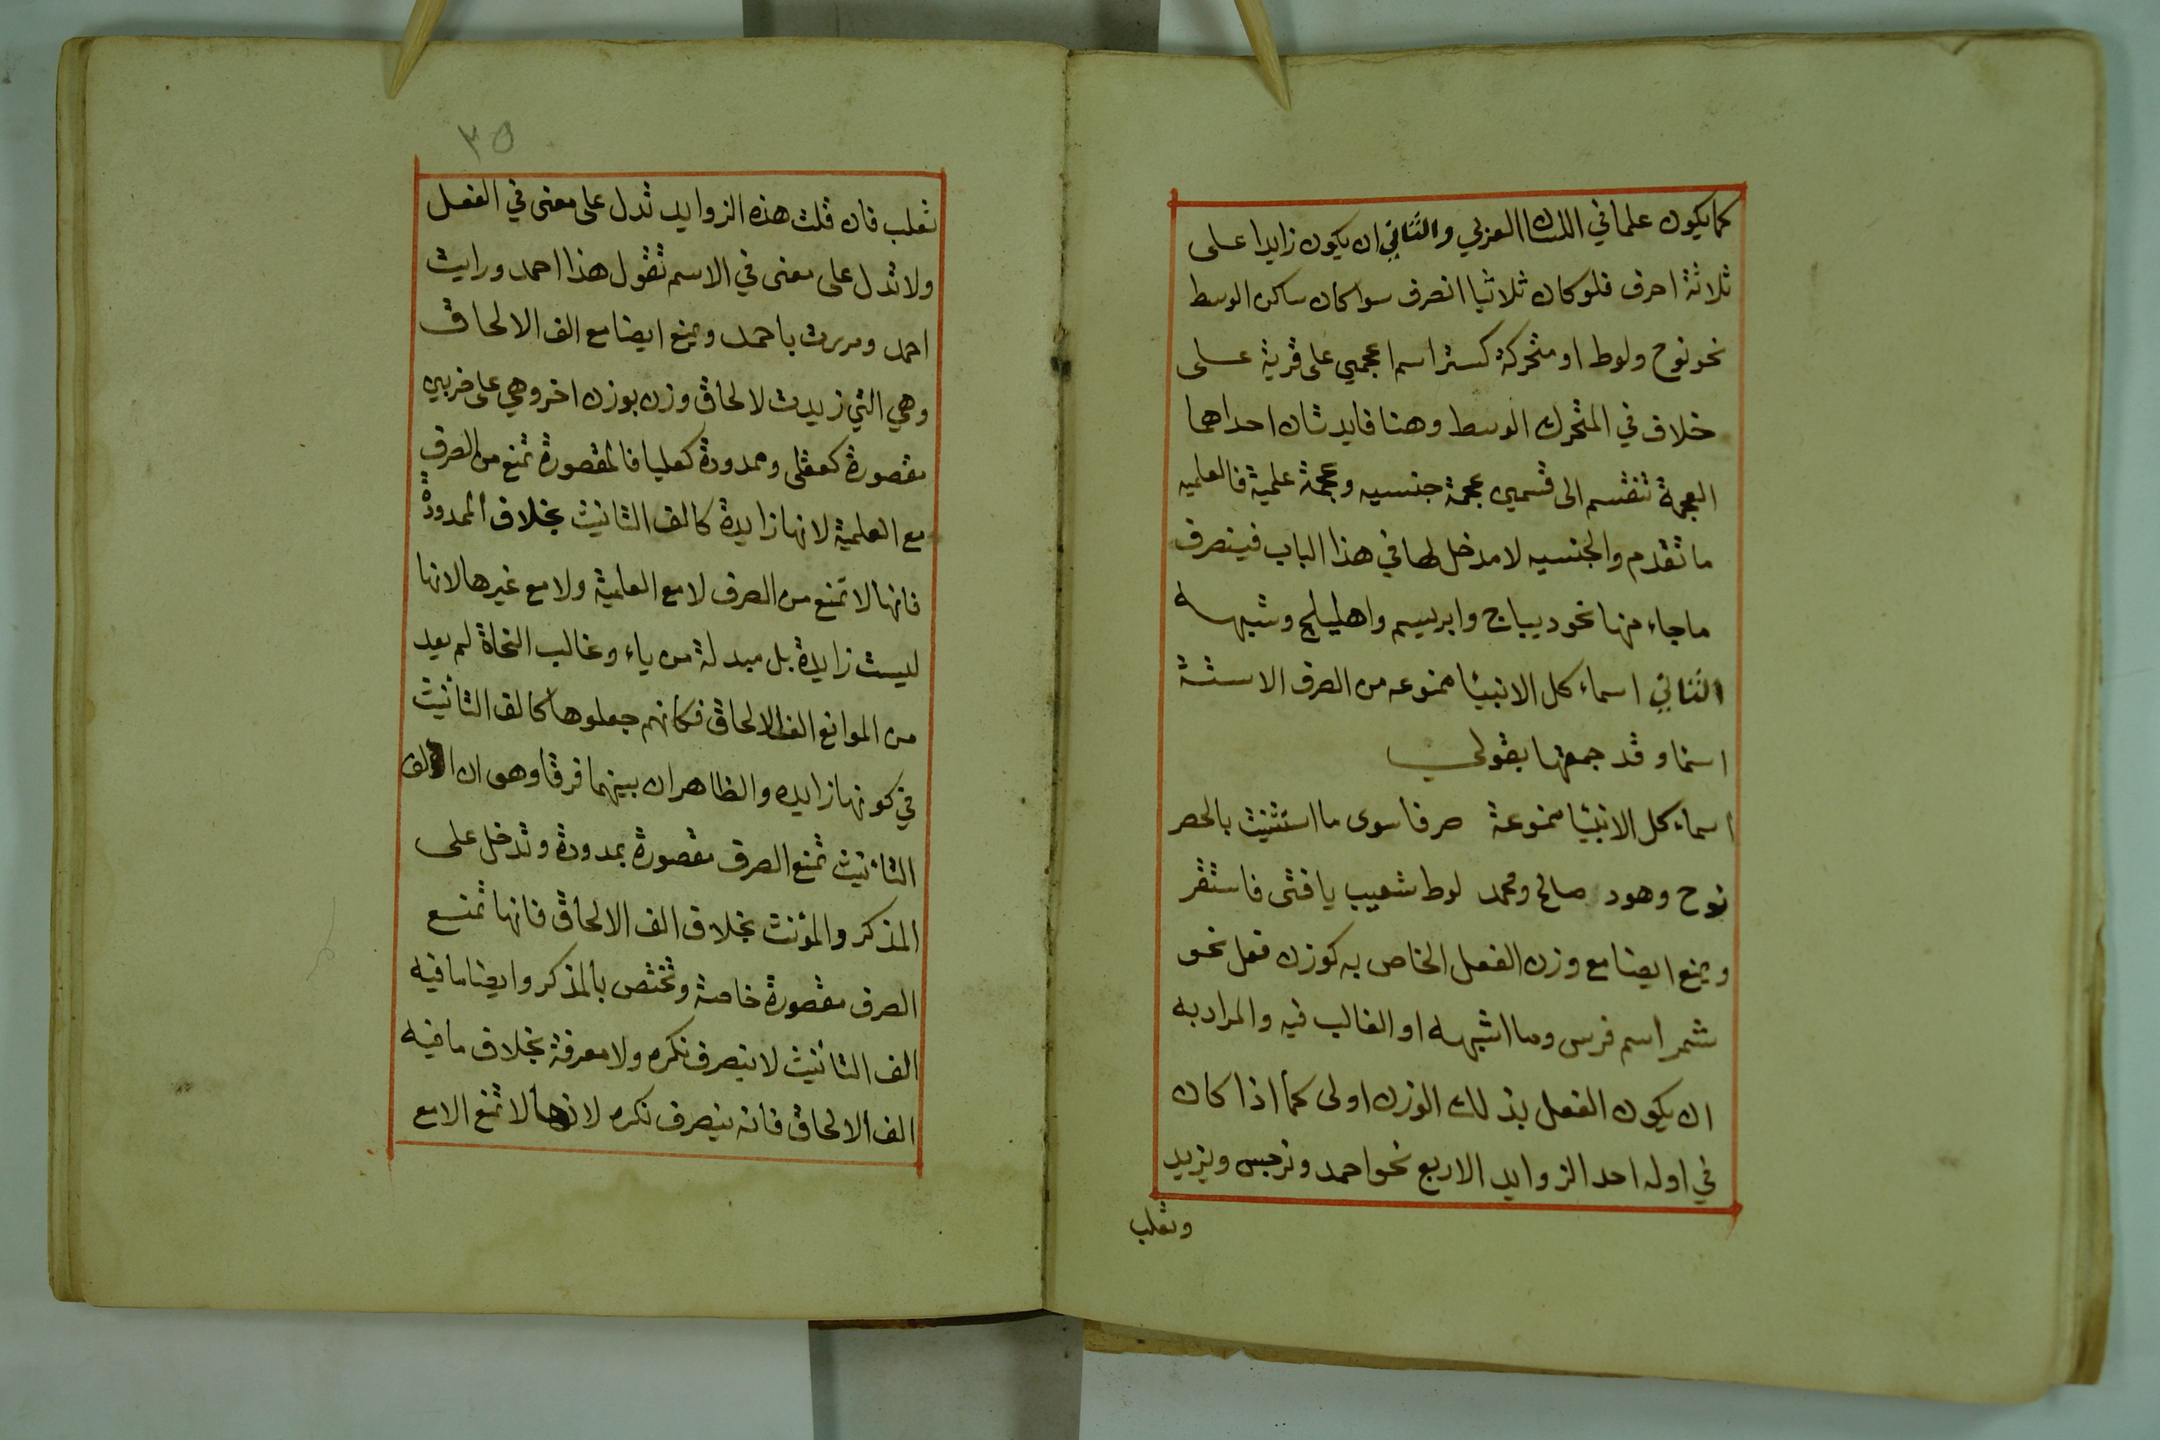 كما يكون علما في اللسان العربي والثاني ان يكون زايدا على
ثلاثة احرف فلو كان ثلاثيا انصرف سوا كان ساكن الوسط
نحو نوح ولوط او متحركة كستر اسم اعجمي على قرية على
خلاف في المتحرك الوسط وهنا فايدتان احداهما
العجمة تنقسم الى قسمين عجمة جنسيه وعجمة علمية فالعلميه
ما تقدم والجنسيه لا مدخل لها في هذا الباب فينصرف
ما جاء منها نحو ديباج وابريسم واهليلج وشبهه
الثاني اسماء كل الانبيا ممنوعه من الصرف الا ستة
اسما وقد جمعتها بقولي
اسماء كل الانبيا ممنوعة صرفا سوى ما استثنيت بالحصر
نوح وهود صالح ومحمد لوط شعيب يا فتى فاستقر
ويمنع ايضا مع وزن الفعل الخاص به كوزن فعل نحو
شمر اسم فرس وما اشبهه او الغالب فيه والمراد به
ان يكون الفعل بذلك الوزن اولى كما اذا كان
في اوله احد الزوايد الاربع نحو احمد ونرجس ويزيد
وتغلب
٣٥
تغلب فان قلت هذه الزوايد تدل على معنى في الفعل
ولا تدل على معنى في الاسم تقول هذا احمد ورايت
احمد ومررت باحمد ويمنع ايضا مع الف الالحاق
وهي التي زيدت لالحاق وزن بوزن اخر وهي على ضربين
مقصورة كعقلى وممدودة كعليا فالمقصورة تمنع من الصرف
مع العلمية لانها زايدة كالف التانيث بخلاف الممدودة
فانها لا تمنع من الصرف لا مع العلمية ولا مع غيرها لانها
ليست زايدة بل مبدلة من ياء وغالب النحاة لم يعد
من الموانع الف الالحاق فكانهم جعلوها كالف التأنيث
في كونها زايده والظاهر ان بينهما فرقا وهو ان الف
التأنيث تمنع الصرف مقصورة بمدودة وتدخل على
المذكر والمؤنث بخلاف الف الالحاق فانها تمنع
الصرف مقصورة خاصة وتختص بالمذكر وايضا ما فيه
الف التأنيث لا ينصرف نكره ولا معرفة بخلاف ما فيه
الف الالحاق فانه ينصرف نكره لانها لا تمنع الا مع